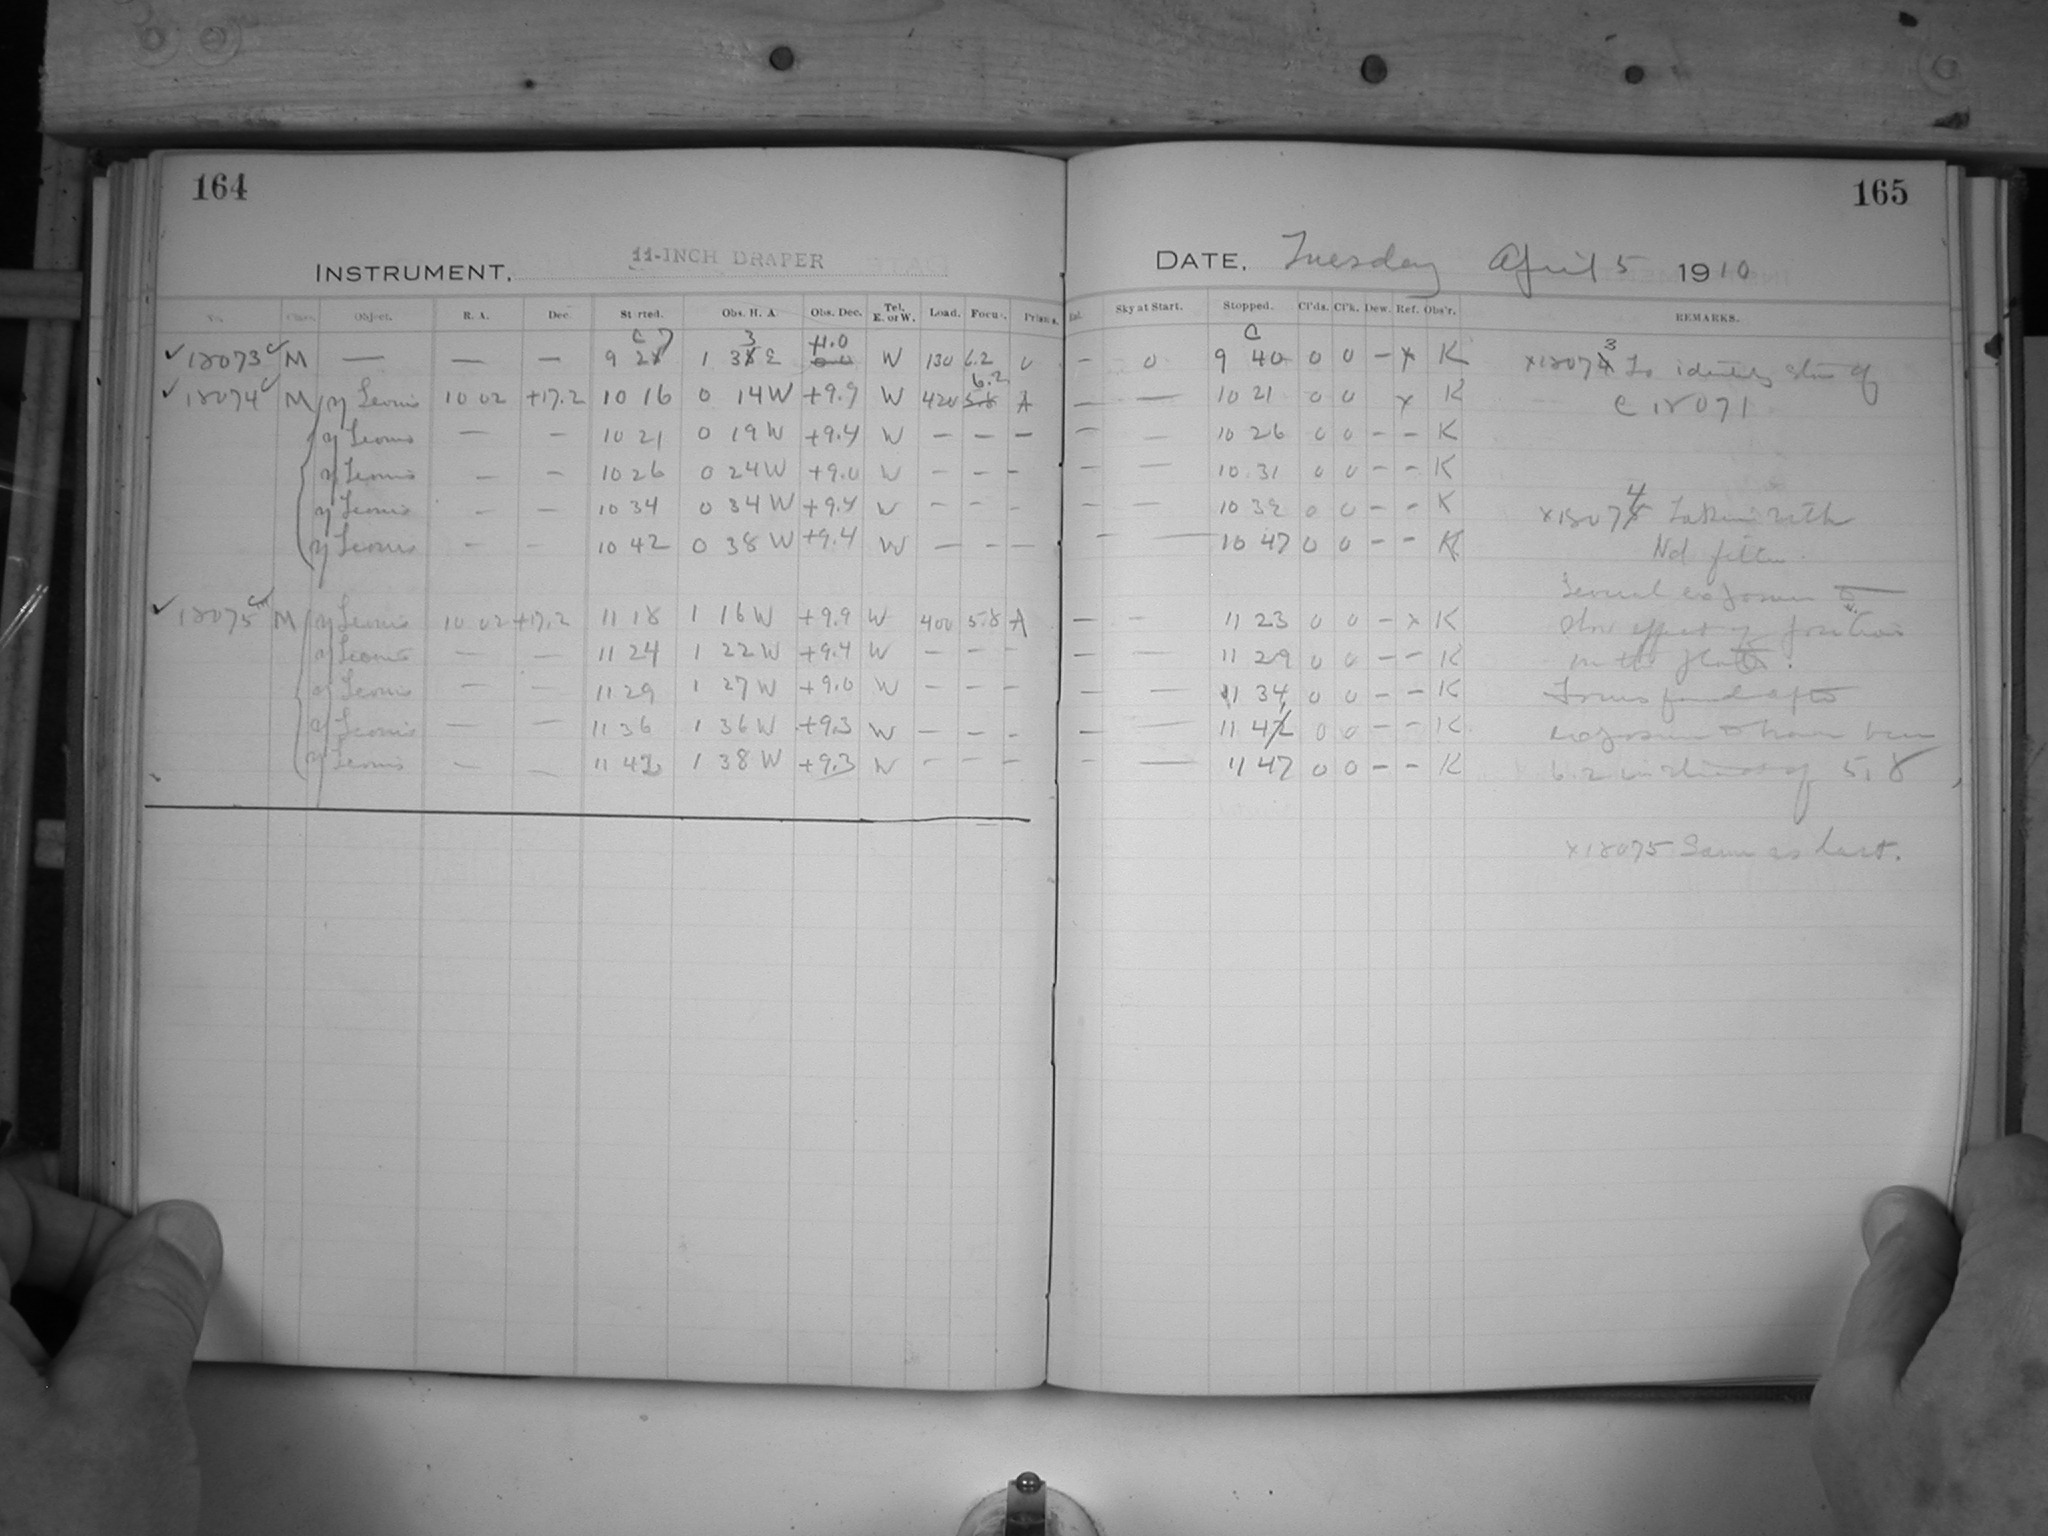 164
165
INSTRUMENT. 11-INCH DRAPER
DATE. Tuesday April 5 1910
No. Class. Object. R. A. Dec. Started. Obs. H. A. Obs. Dec. Tel. E. or W. Load. Focus. Prisms. Sky at Start. Stopped. Cl'ds. Cl'k. Dew. Ref. Obs'r. REMARKS.
C 7 3 +1.0 C
✓ 18073 c M — — — 9 28 1 38 E 0 0 W 130 6.2 0 — 0 9 40 0 0 – x K x18074 3 To identify stars of
6.2
✓ 18074 c M η Leonis 10 02 +17.2 10 16 0 14 W +9.9 W 420 5.8 A — — 10 21 0 0 x K C 18071
η Leonis — — 10 21 0 19 W +9.4 W — — — — — 10 26 0 0 – – K
η Leonis — — 10 26 0 24 W +9.0 W – – – — — 10 31 0 0 – – K
η Leonis – — 10 34 0 34 W +9.4 W – – – — — 10 39 0 0 – – K x18075 4 Taken with
η Leonis – – 10 42 0 38 W +9.4 W — – — – — 10 47 0 0 – – K Nd filter.
Several exposures to
✓ 18075 M η Leonis 10 02 +17.2 11 18 1 16 W +9.9 W 400 5.8 A — — 11 23 0 0 – x K show effect of position
η Leonis — — 11 24 1 22 W +9.4 W – – – — — 11 29 0 0 – – K on the plate.
η Leonis — — 11 29 1 27 W +9.0 W – – – – — 11 34 0 0 – – K Focus found after
η Leonis — — 11 36 1 36 W +9.3 W – – – – — 11 42 0 0 – – K exposure to have been
η Leonis — — 11 42 1 38 W +9.3 W – – – – — 11 47 0 0 – – K 6.2 instead of 5.8
x18075 Same as last.